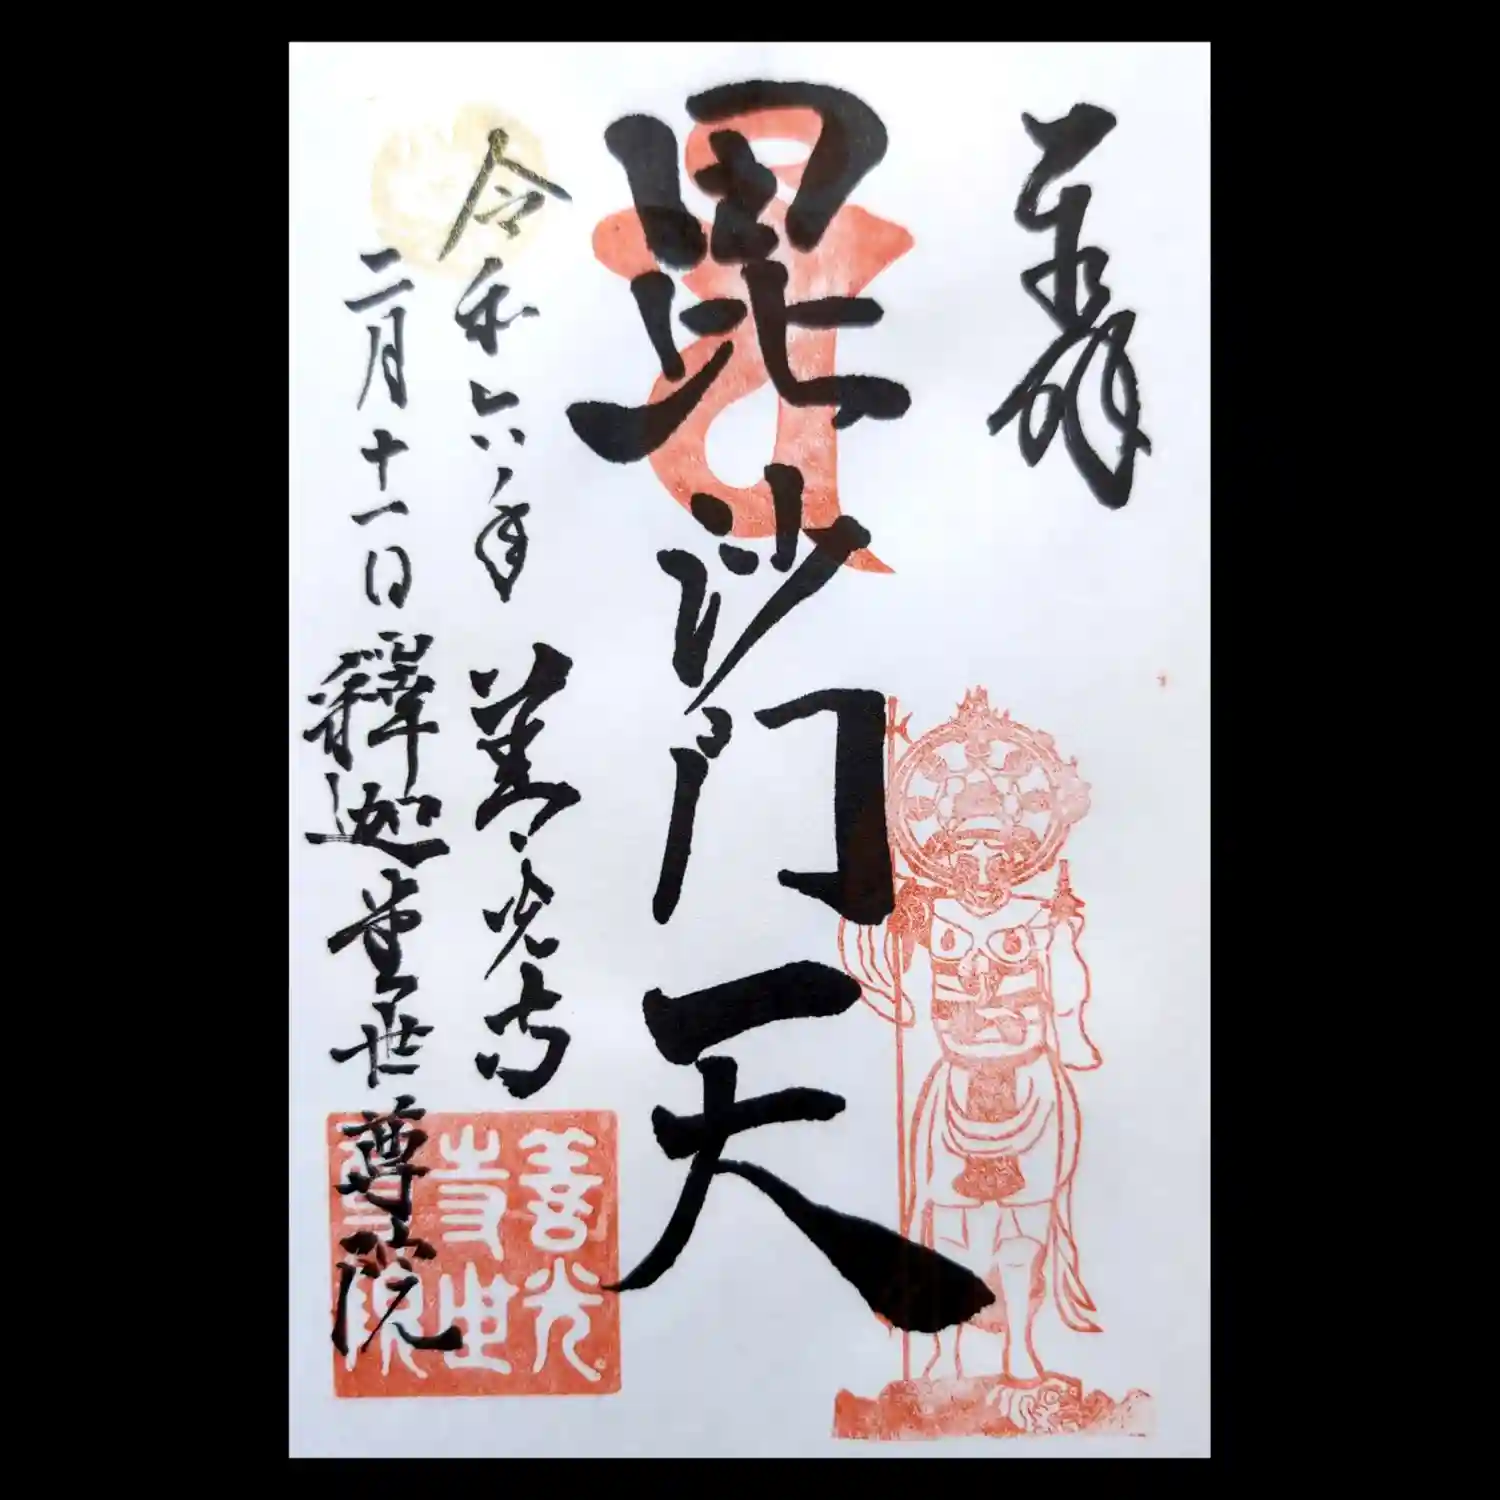 奉拝
毘沙門天
令和六年 善光寺
二月十一日 釋迦堂世尊院
善光
寺世
尊院